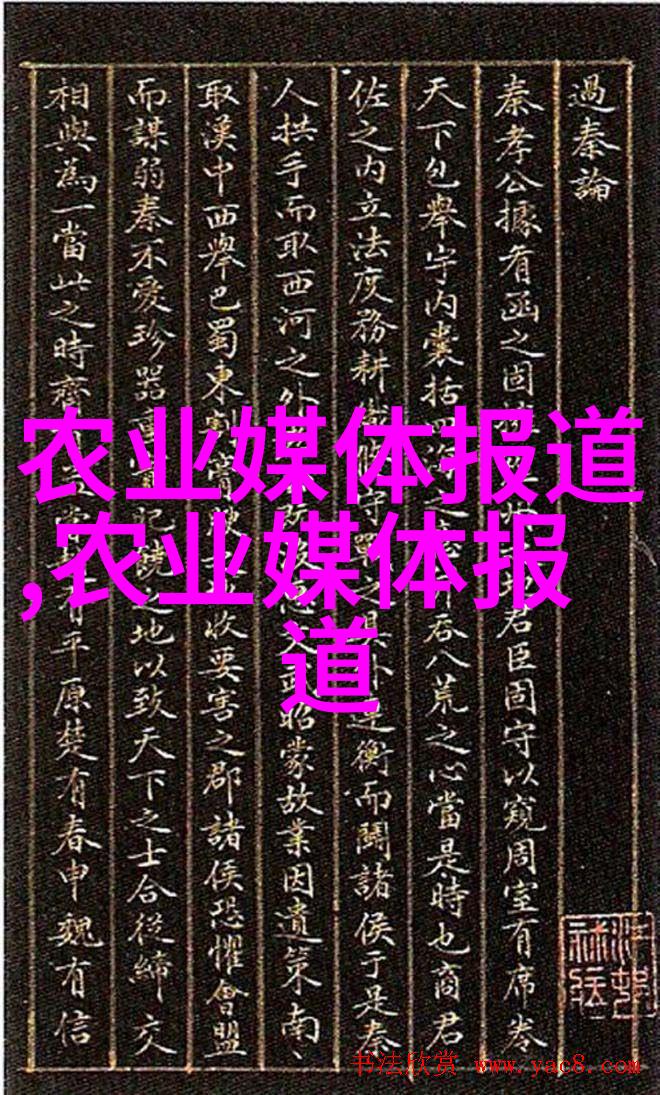 過秦論
秦孝公據有函之固
君臣固守以窺周室有席卷
天下包舉宇内囊括四海之
吞八荒之心當是時也商君
佐之内立法度務耕
守
之具
連衡而鬭諸侯于是秦
人拱手而取西河之外
昭蒙故業因遺策南
取漢中西舉巴蜀東割
收要害之郡諸侯恐懼會盟
而謀弱秦不愛珍器重寶
饒之地以致天下之士合從締交
相與爲一當此之時齊
有平原楚有春申魏有信
农业媒体报道
,农业媒体报
道
书法欣赏 www.yac8.com